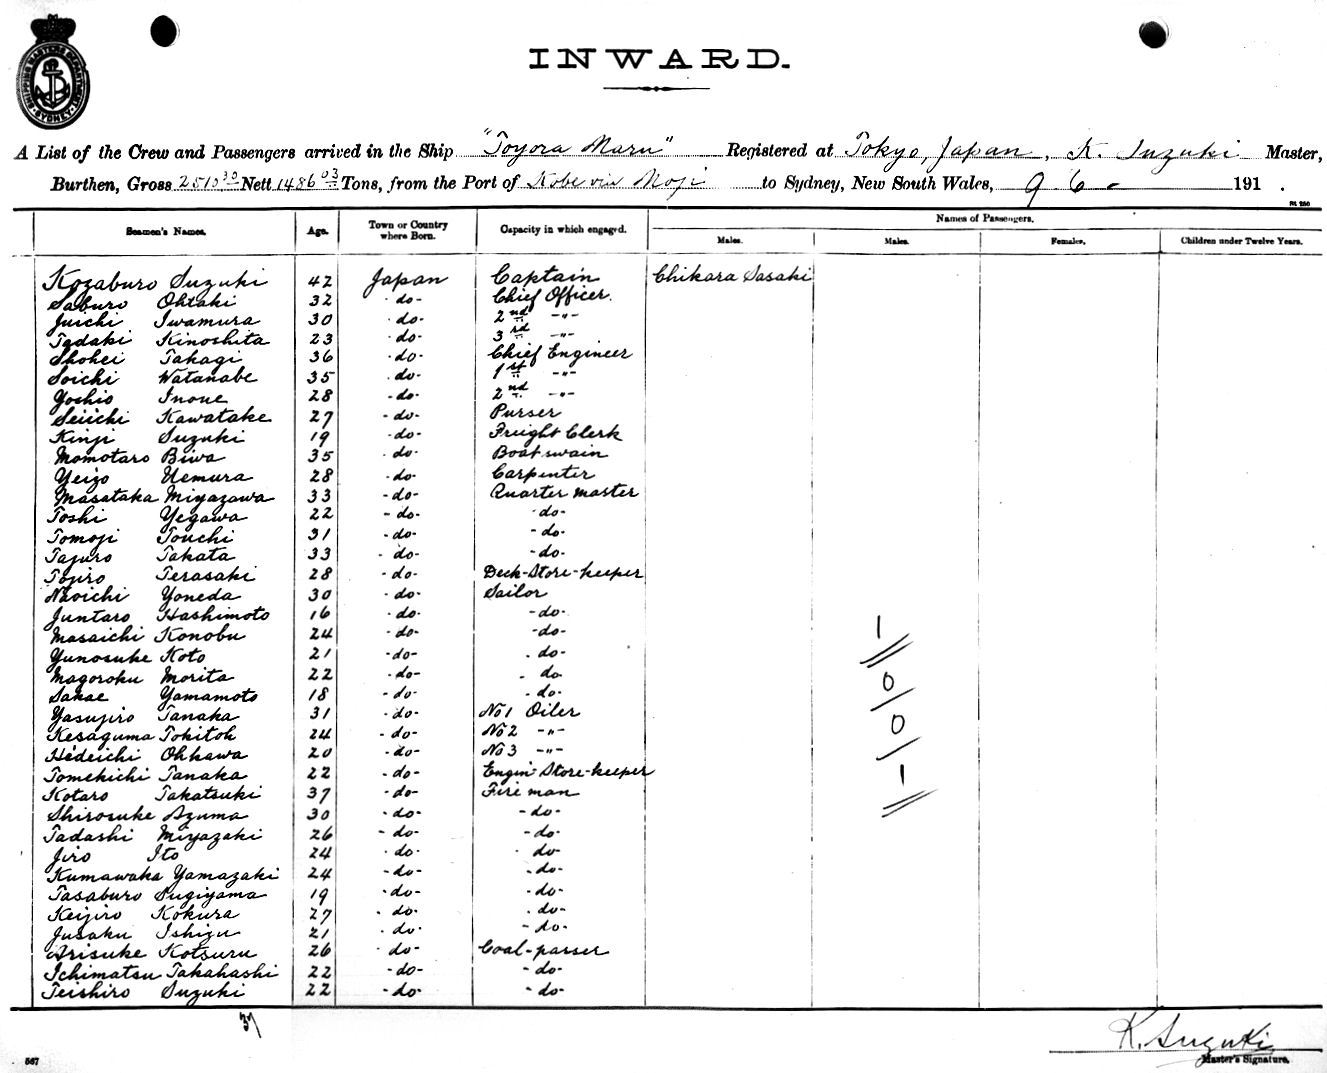 SHIPPING MASTERS DEPARTMENT SYDNEY
INWARD.
A List of the Crew and Passengers arrived in the Ship "Toyora Maru" Registered at Tokyo, Japan, K. Suzuki Master,
Burthen, Gross 2510 30 Nett 1486 03 Tons, from the Port of Kobe via Moji to Sydney, New South Wales, 9 6 - 191 .
Seamen's Names. Age. Town or Country where Born. Capacity in which engaged. Names of Passengers.
Males. Males. Females. Children under Twelve Years.
Kozaburo Suzuki 42 Japan Captain Chikara Sasaki
Saburo Ohtaki 32 -do- Chief Officer.
Juichi Iwamura 30 -do- 2nd -"-
Tadaki Kinoshita 23 -do- 3rd -"-
Shohei Takagi 36 -do- Chief Engineer
Soichi Watanabe 35 -do- 1st -"-
Yoshio Inoue 28 -do- 2nd -"-
Seiichi Kawatake 27 -do- Purser
Kinji Suzuki 19 -do- Freight Clerk
Momotaro Biwa 35 -do- Boatswain
Yeizo Uemura 28 -do- Carpenter
Masataka Miyazawa 33 -do- Quarter master
Toshi Yegawa 22 -do- -do-
Tomoji Touchi 31 -do- -do-
Tajuro Takata 33 -do- -do-
Tojiro Terasaki 28 -do- Deck-Store-keeper
Naoichi Yoneda 30 -do- Sailor
Juntaro Hashimoto 16 -do- -do-
Masaichi Konobu 24 -do- -do-
Yunosuke Koto 21 -do- -do-
Magoroku Morita 22 -do- -do-
Sakae Yamamoto 18 -do- -do-
Yasujiro Tanaka 31 -do- No1 Oiler
Kesaguma Tokitoh 24 -do- No2 -"-
Hideichi Ohkawa 20 -do- No3 -"-
Tomekichi Tanaka 22 -do- Engin Store-keeper
Kotaro Takatsuki 37 -do- Fire man
Shirosuke Azuma 30 -do- -do-
Tadashi Miyazaki 26 -do- -do-
Jiro Ito 24 -do- -do-
Kumawaka Yamazaki 24 -do- -do-
Tasaburo Sugiyama 19 -do- -do-
Keijiro Kokura 27 -do- -do-
Jusaku Ishizu 21 -do- -do-
Arisuke Kotsuru 26 -do- Coal-passer
Ichimatsu Takahashi 22 -do- -do-
Teishiro Suzuki 22 -do- -do-
1
0
0
1
37
K. Suzuki
Master's Signature.
567